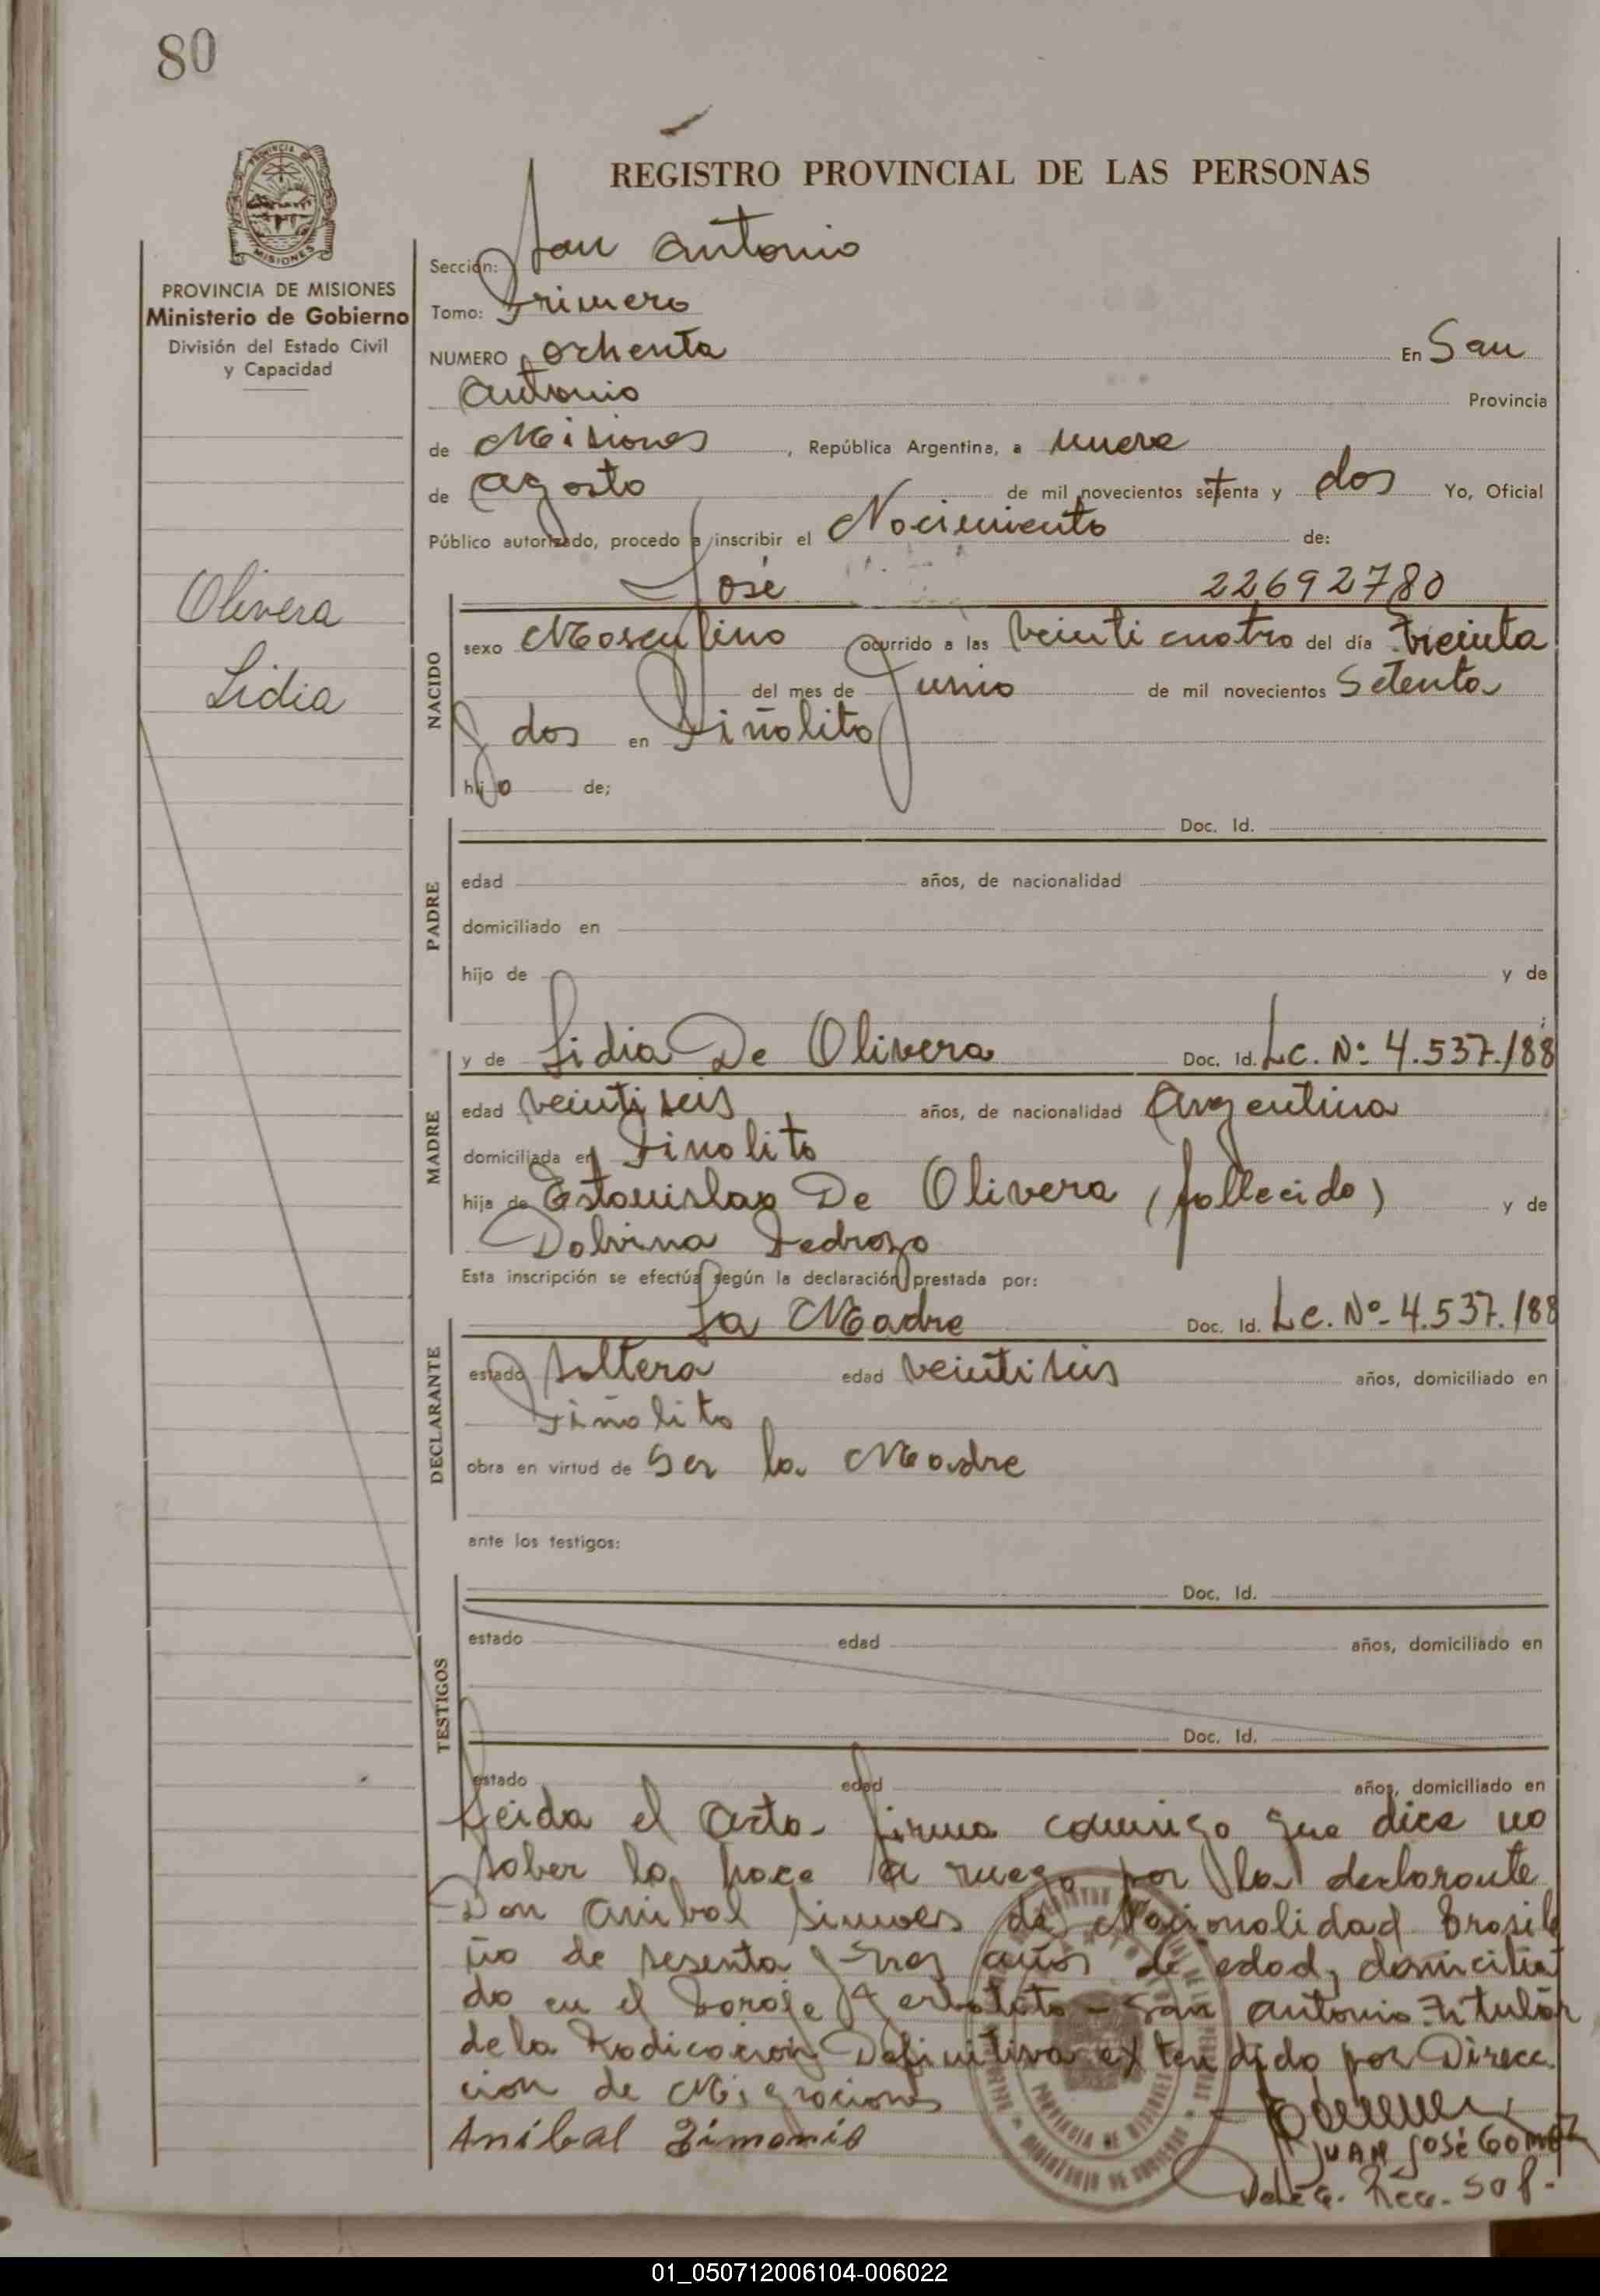 80
REGISTRO PROVINCIAL DE LAS PERSONAS
PROVINCIA DE MISIONES
Ministerio de Gobierno
División del Estado Civil
y Capacidad
Olivera
Lidia
Sección: San Antonio
Tomo: Primero
NUMERO ochenta En San
Antonio Provincia
de Misiones, República Argentina, a nueve
de Agosto de mil novecientos setenta y dos Yo, Oficial
Público autorizado, procedo a inscribir el Nacimiento de:
José 22692780
NACIDO
sexo Masculino ocurrido a las veinticuatro del día treinta
del mes de Junio de mil novecientos Setenta
y dos en Piñalito
hijo de;
PADRE
Doc. Id.
edad años, de nacionalidad
domiciliado en
hijo de y de
MADRE
y de Lidia De Olivera Doc. Id. Lc. Nº 4.537.188
edad veintiseis años, de nacionalidad Argentina
domiciliada en Pinalito
hija de Estanislao De Olivera (fallecido) y de
Dalvina Pedrozo
Esta inscripción se efectúa según la declaración prestada por:
DECLARANTE
La Madre Doc. Id. Lc. Nº 4.537.188
estado soltera edad veintiseis años, domiciliado en
Piñalito
obra en virtud de Ser la Madre
ante los testigos:
TESTIGOS
Doc. Id.
estado edad años, domiciliado en
Doc. Id.
estado edad años, domiciliado en
Leida el Acta- firma conmigo que dice no
saber lo hace a ruego por la declarante
Don Anibal Simoes de Nacionalidad Brasile
ño de sesenta y tres años de edad, domicilia
do en el Paraje Yerbatato - San Antonio-
de la Radicacion Definitiva extendido por Direcc
cion de Migraciones
Aníbal
JUAN JOSé GOMEZ
01_050712006104-006022